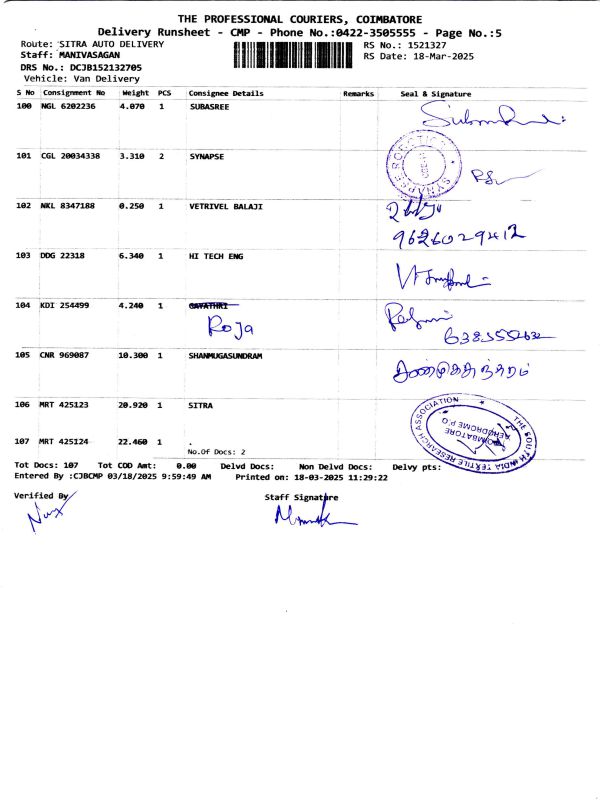 THE PROFESSIONAL COURIERS, COIMBATORE
Delivery Runsheet - CMP - Phone No.:0422-3505555 - Page No.:5
Route: SITRA AUTO DELIVERY
RS No.: 1521327
Staff: MANIVASAGAN
RS Date: 18-Mar-2025
DRS No.: DCJB152132705
Vehicle: Van Delivery
S No Consignment No Weight PCS Consignee Details Remarks Seal & Signature
100 NGL 6202236 4.070 1 SUBASREE
101 CGL 20034338 3.310 2 SYNAPSE
SYNAPSE ROBOTICS
102 NKL 8347188 0.250 1 VETRIVEL BALAJI
9626029412
103 DDG 22318 6.340 1 HI TECH ENG
104 KDI 254499 4.240 1 GAYATHRI
Roja
105 CNR 969087 10.300 1 SHANMUGASUNDRAM
சண்முகசுந்தரம்
106 MRT 425123 20.920 1 SITRA
THE SOUTH INDIA TEXTILE RESEARCH ASSOCIATION
AERODROME P.O
COIMBATORE
107 MRT 425124 22.460 1 .
No.Of Docs: 2
Tot Docs: 107 Tot COD Amt: 0.00 Delvd Docs: Non Delvd Docs: Delvy pts:
Entered By :CJBCMP 03/18/2025 9:59:49 AM Printed on: 18-03-2025 11:29:22
Verified By
Staff Signature